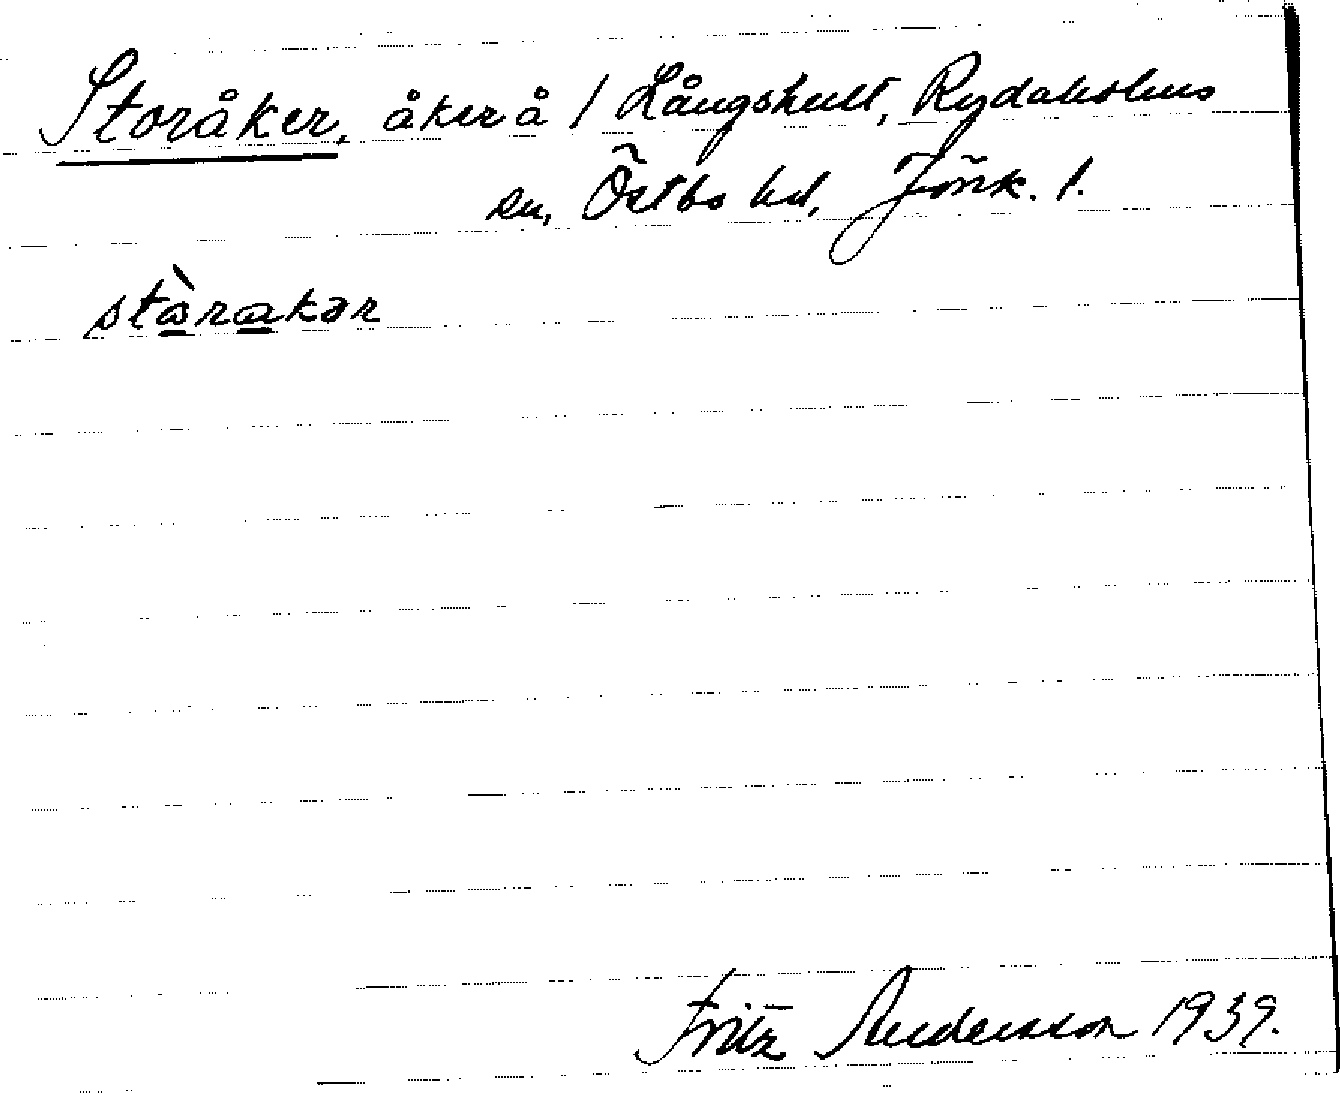 Storåker, åker å / Långshult, Rydaholms
sn, Östbo hd, Jönk. l.
stàrakər
Fritz Andersson 1939.